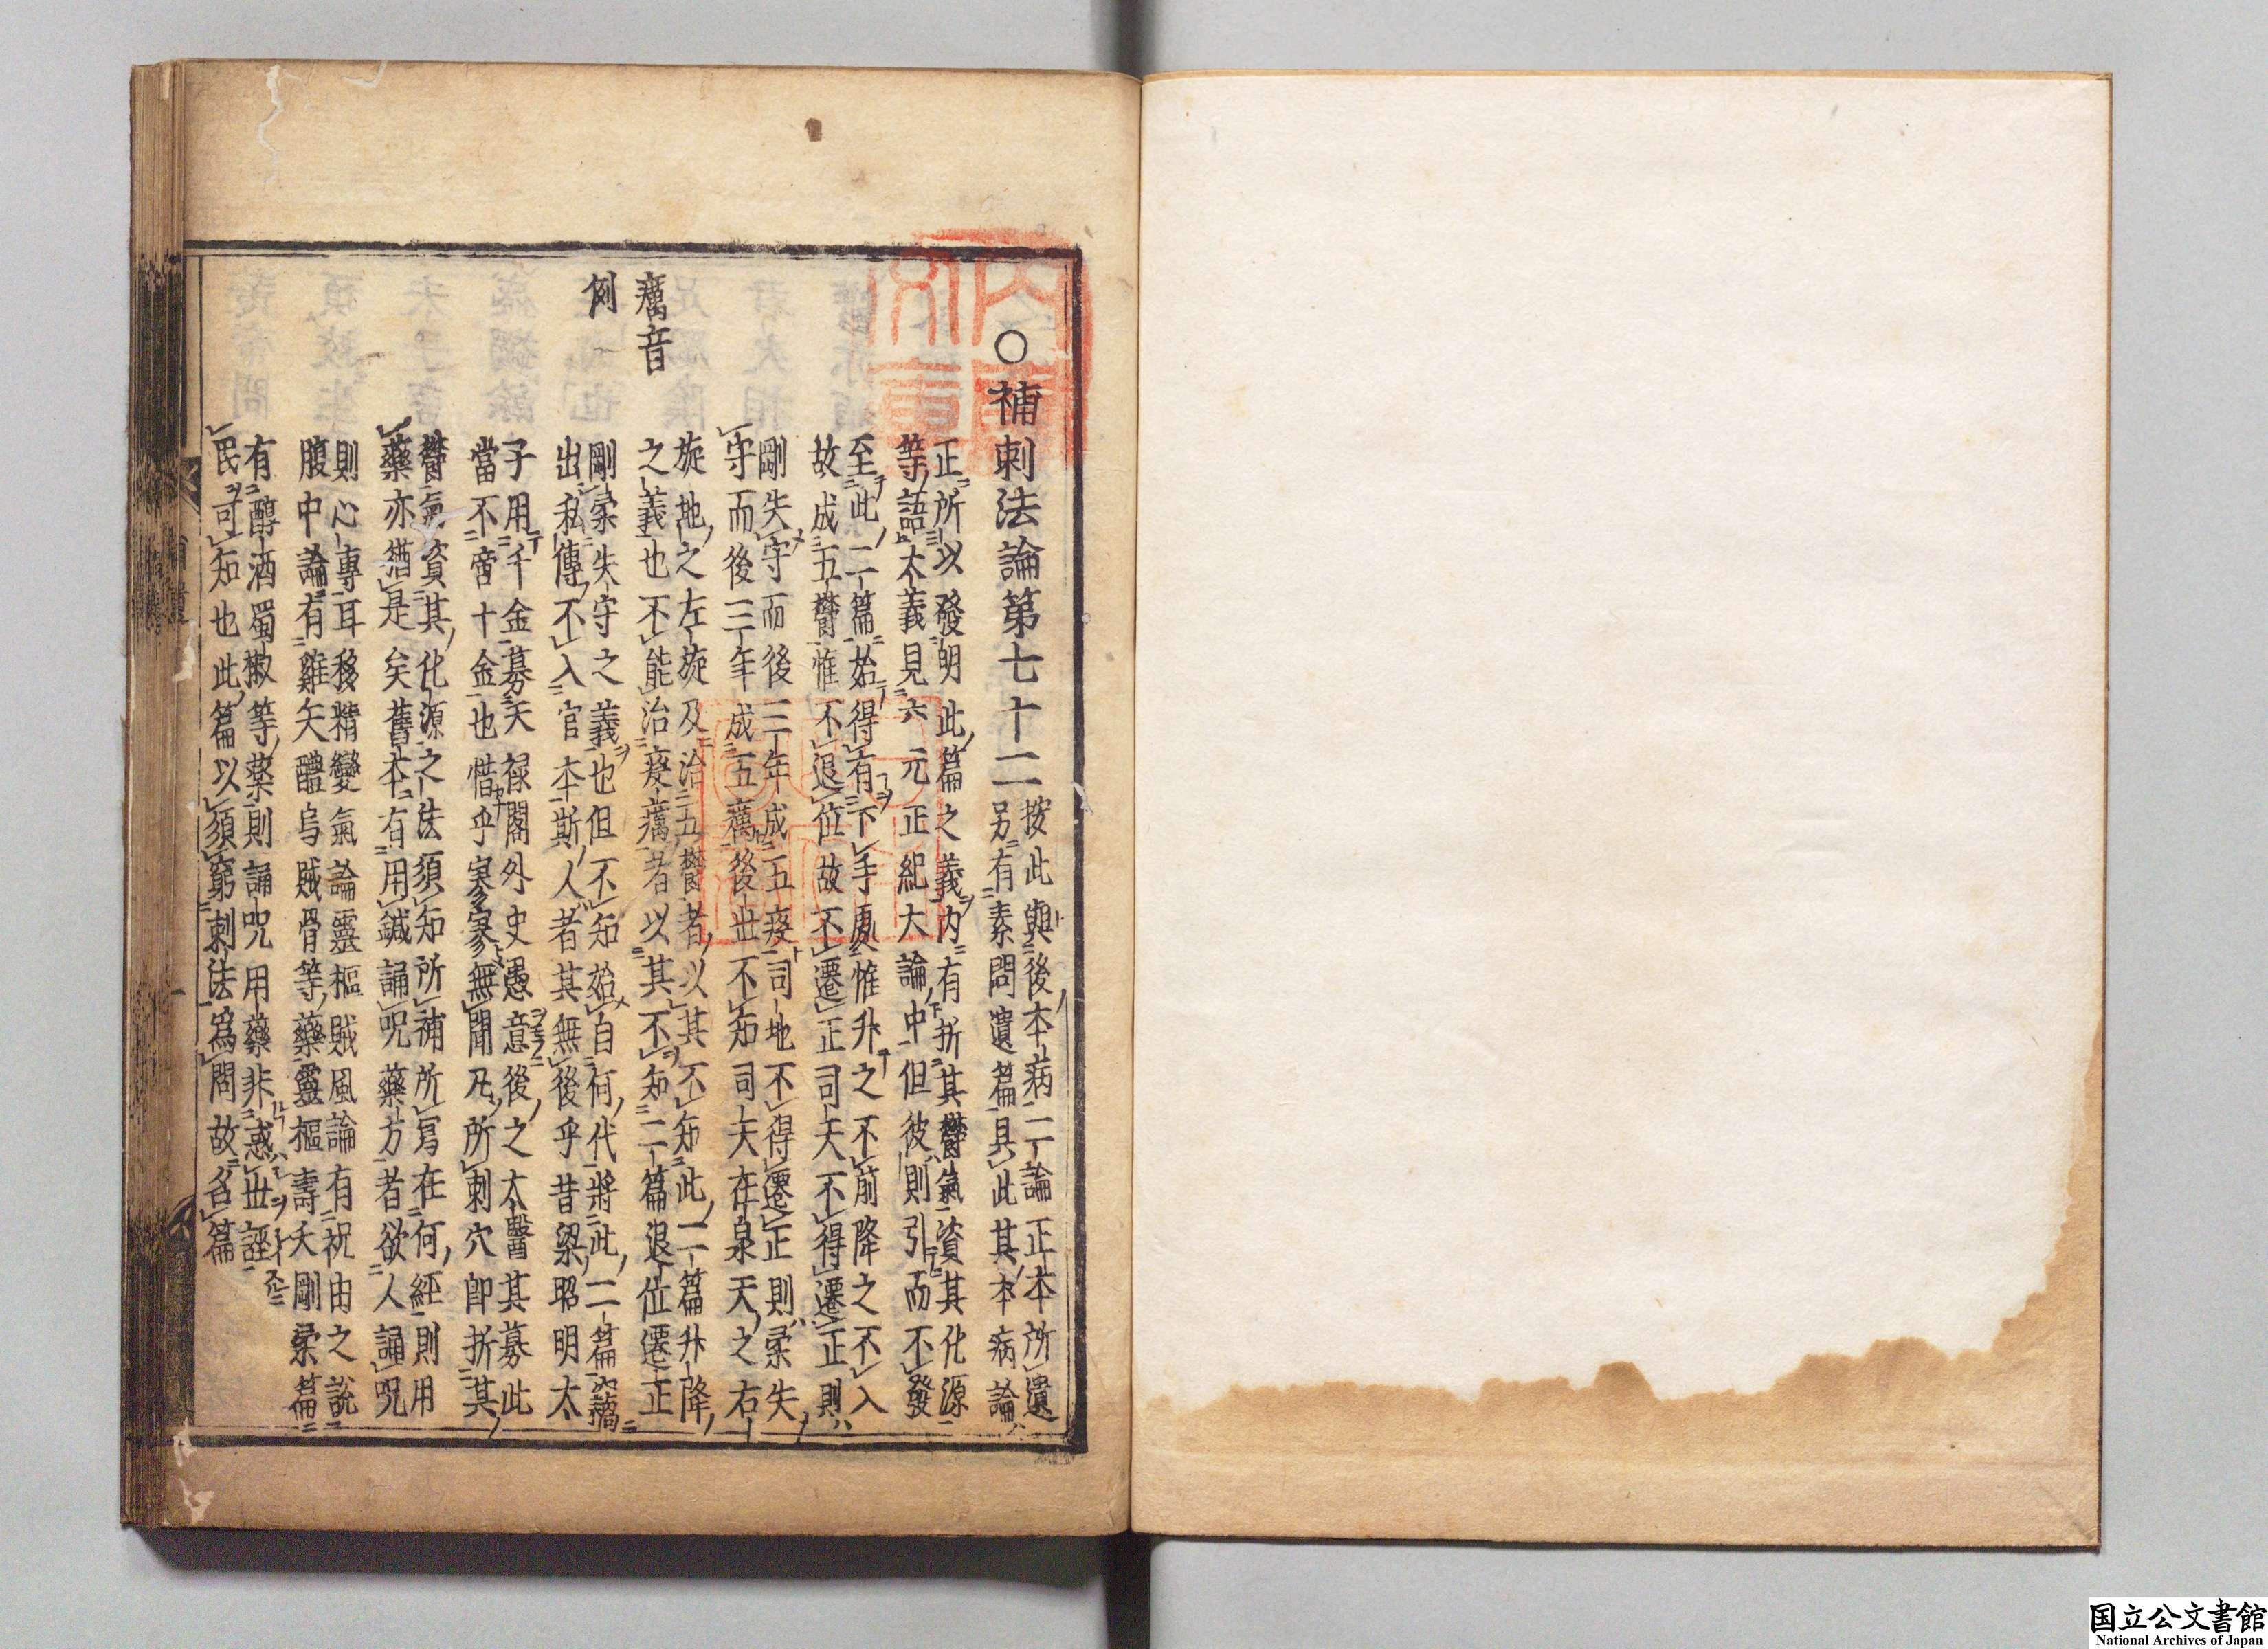 ○補刺法論第七十二
按此與後本病二論正本所遺
另有素問遺篇具此其本病論
正所以發明此篇之義内有折其欝氣資其化源
等語大義見六元正紀大論中但彼則引而不發
至此二篇始得有下手處惟升之不前降之不入
故成五欝惟不退位故不遷正司天不得遷正則
剛失守而後三年成五疫司地不得遷正則柔失
守而後三年成五癘後世不知司天在泉天之右
旋地之左旋及治五欝者以其不知此二篇升降
之義也不能治疫癘者以其不知二篇退位遷正
剛柔失守之義也但不知始自何代將此二篇竊
出私傳不入官本斯人者其無後乎昔梁昭明太
子用千金募天禄閣外史愚意後之太醫其募此
當不啻十金也惜乎寥寥無聞凡所刺穴即折其
欝氣資其化源之法須知所補所寫在何經則用
藥亦猶是矣舊本有用鍼誦呪藥方者欲人誦呪
則心專耳移精變氣論靈樞賊風論有祝由之說
腹中論有雞矢醴烏賊骨等藥靈樞壽夭剛柔篇
有醇酒蜀椒等藥則誦呪用藥非惑世誣
民可知也此篇以須窮刺法爲問故名篇
癘音
例
国立公文書館
National Archives of Japan